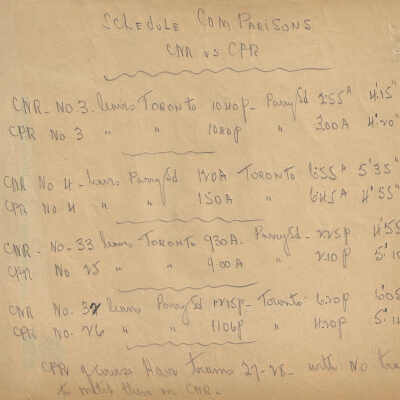 SCHEDULE COMPARISONS
CNR vs CPR
CNR - No 3. leaves TORONTO 1040p - Parry Sd 255A 4'15"
CPR No 3 " " 1040p " 300A 4'20"
CNR No 4 - leaves Parry Sd 120A TORONTO 655A 5'35"
CPR No 4 " " 150A " 645A 4'55"
CNR - No - 33 leaves TORONTO 930A. Parry Sd - 225p 4'55
CPR No 25 " " 900A " 210p 5'10
CNR No. 32 leaves Parry Sd 1215p - Toronto 620p 6'05
CPR No. 26 " " 1106p " 420p 5'14
CPR of course Have trains 27-28 - with No tra
to match them on CNR -